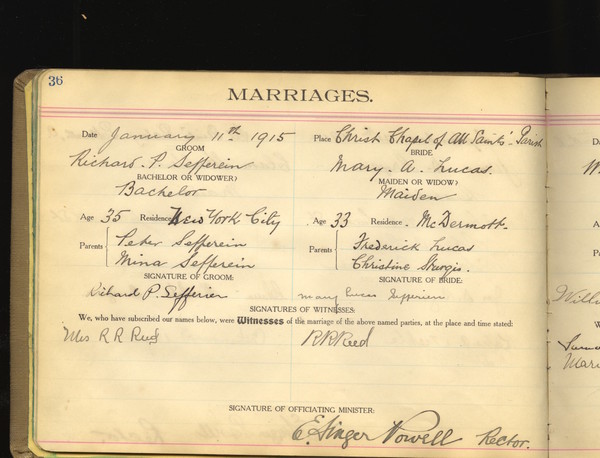 36
MARRIAGES.
Date January 11th 1915 Place Christ Chapel of All Saints' Parish
GROOM BRIDE
Richard. P. Sefferein Mary. A. Lucas.
BACHELOR OR WIDOWER? MAIDEN OR WIDOW?
Bachelor Maiden
Age 35 Residence New York City Age 33 Residence. McDermott.
Parents Peter Sefferein Parents Frederick Lucas
Mina Sefferein Christine Sturgis.
SIGNATURE OF GROOM: SIGNATURE OF BRIDE:
Richard P. Sefferien Mary Lucas Sefferien
SIGNATURES OF WITNESSES:
We, who have subscribed our names below, were Witnesses of the marriage of the above named parties, at the place and time stated:
Mrs R R Reed R R Reed
SIGNATURE OF OFFICIATING MINISTER:
E. Singer Powell Rector.